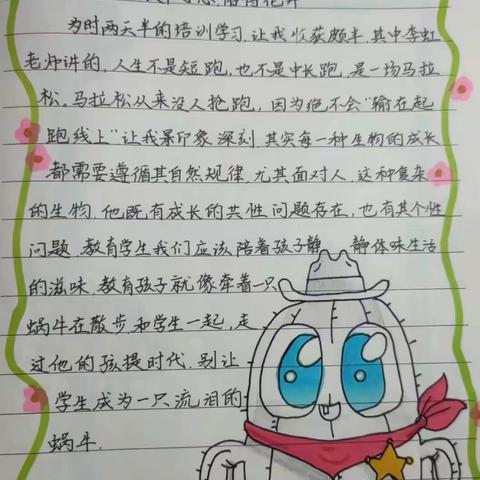 为时两天半的培训学习,让我收获颇丰.其中李虹
老师讲的,人生不是短跑,也不是中长跑,是一场马拉
松,马拉松从来没人抢跑,因为绝不会"输在起
跑线上"让我景印象深刻.其实每一种生物的成长
都需要遵循其自然规律,尤其面对人,这种复杂
的生物,他既有成长的共性问题存在,也有其个性
问题.教育学生我们应该陪着孩子静静体味生活
的滋味,教育孩子就像牵着一只
蜗牛在散步,和学生一起,走
过他的孩提时代,别让
学生成为一只流泪的
蜗牛.